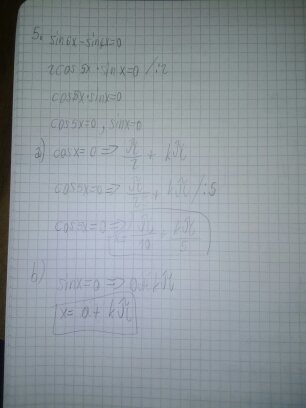 5. sin6x-sin4x=0
2cos5x·sinx=0/:2
cos5x·sinx=0
cos5x=0, sinx=0
a) cosx=0=>π/2+kπ
cos5x=0=>π/2+kπ/:5
cos5x=0=>π/10+kπ/5
b) sinx=0=>0+kπ
x=0+kπ